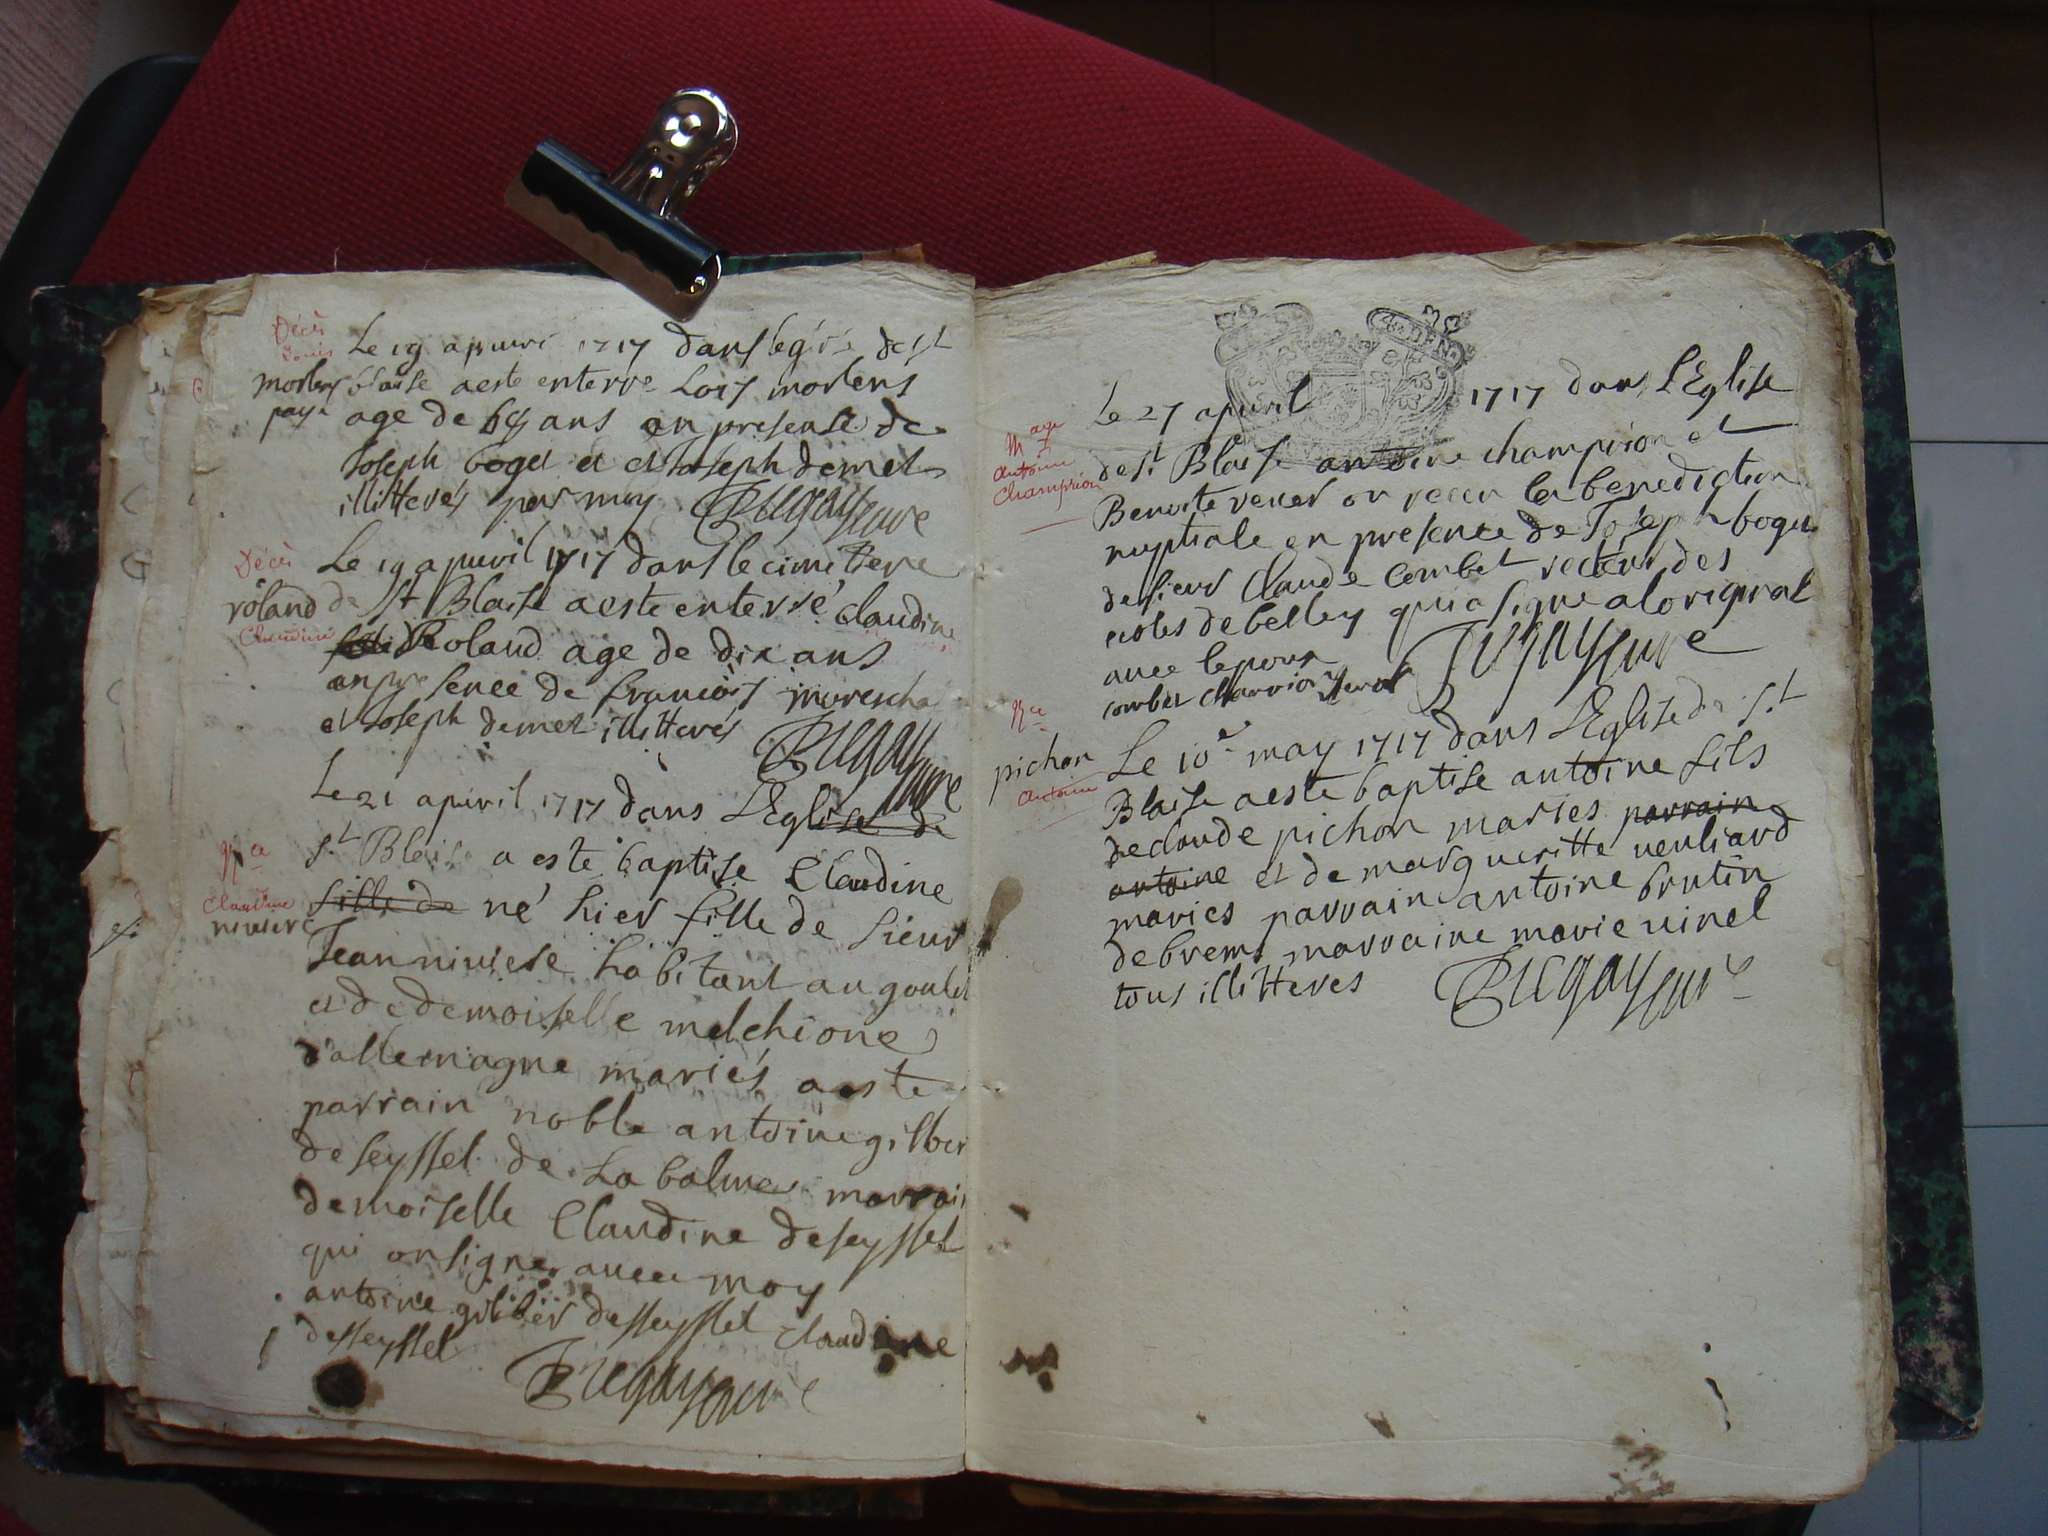 Décès
Louis
morlens
paye
Le 19 apuuri 1717 dans legise de st
blaise a este enterre Lois morlens
age de 68 ans en presense de
Joseph boget et et Joseph demet
illitterés par moy Bugay cure
Décès
roland
Claudine
Le 19 apuuril 1717 dans le cimittiere
de St Blaise a este enterré claudine
Roland age de dix ans
en presence de francois morescha
et Joseph demet illitterés
Bugay cure
Le 21 apuril 1717 dans L'Eglise de
Nce
Claudine
niviere
st Blaise a este baptise Claudine
fille de né hier fille de sieur
Jean niviere habitant au goulet
et de demoiselle melchione
d'allemagne mariés a este
parrain noble antoine gilber
de seyssel de La balme marrain
demoiselle Claudine de seyssel
qui on signe avec moy
antoine gilber desseyssel claudine
desseyssel
Bugay cure
Mage
antoine
Champion
Le 27 apuril 1717 dans L'Eglise
de st Blaise antoine champion et
Benoite on receu la benediction
nuptiale en presence de Joseph boget
de sieur Claude Combet recteur des
ecoles de belley qui a signe a loriginal
avec
combet
Bugay cure
Nce
pichon
antoine
Le 10e may 1717 dans L'Eglise de st
Blaise a este baptise antoine fils
de claude pichon maries parrain
antoine et de margueritte veuliard
maries parrain antoine brutin
de brems marraine marie vinet
tous illitteres Bugay cure